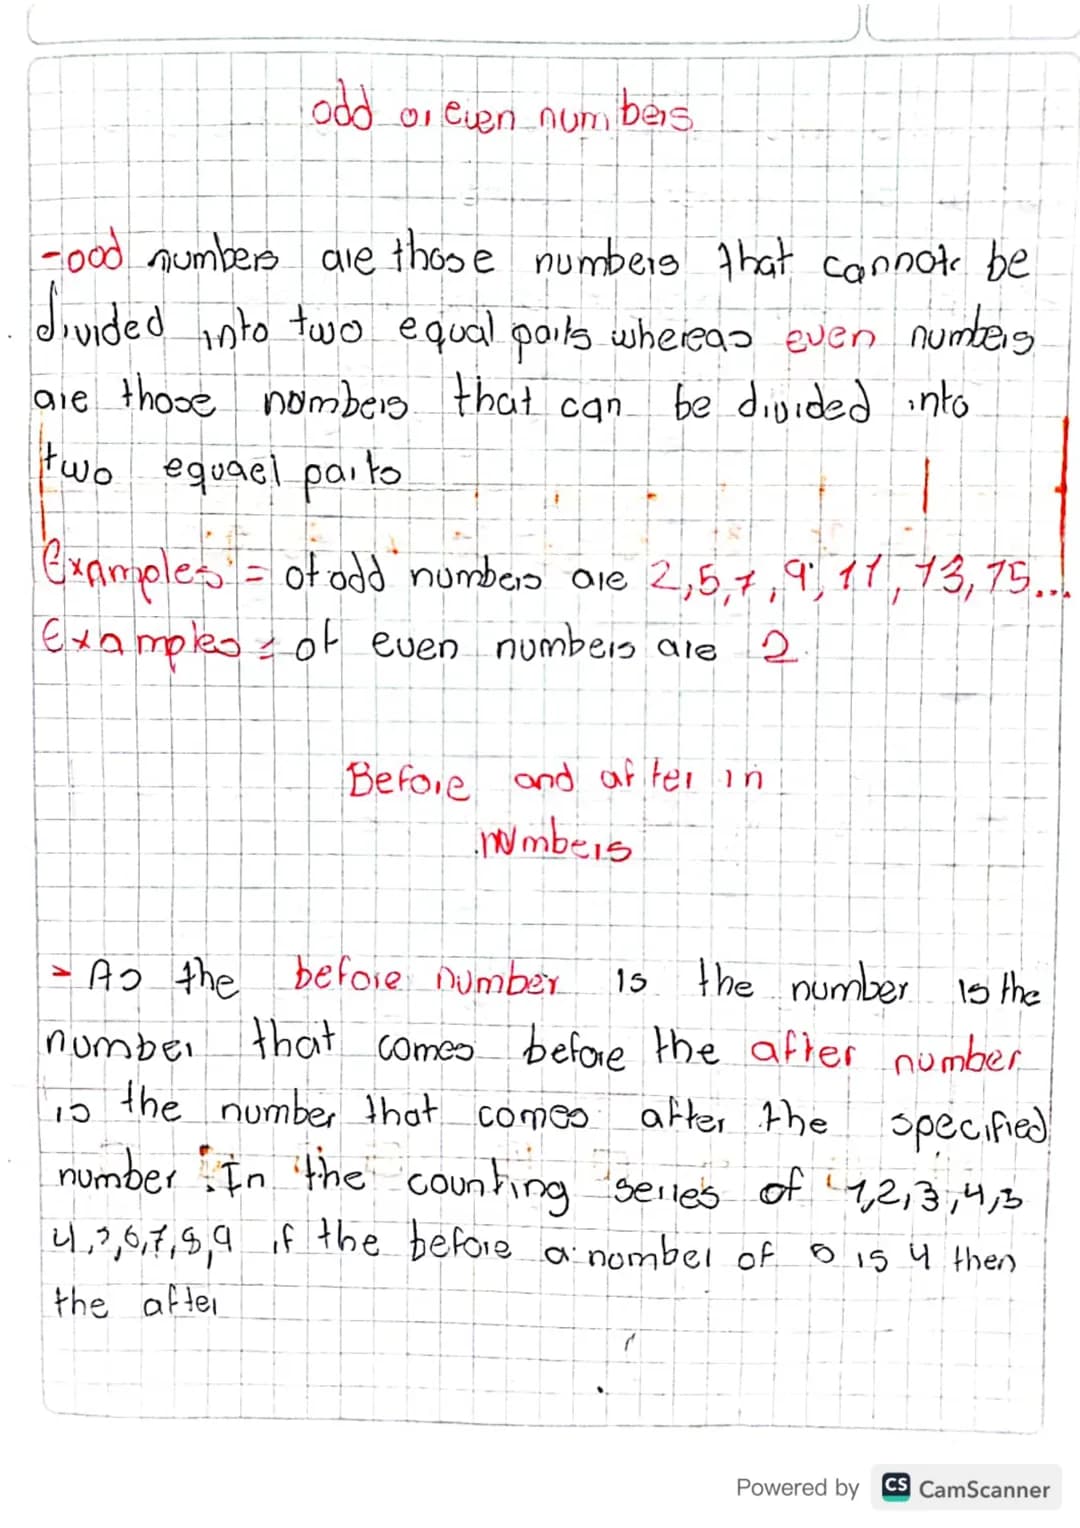 odd or even numbers
- ood numbers are those numbers that cannot be
divided into two equal parts whereas even numbers
are those numbers that can be divided into
two equael parts
Examples = of odd numbers are 2,5,7,9,11,13,15...
Examples = of even numbers are 2.
Before and after in
numbers
- As the before number is the number is the
number that comes before the after number
is the number that comes after the specified
number. In the counting series of 1,2,3,4,5
4,5,6,7,8,9 if the before a number of 5 is 4 then
the after
Powered by CS CamScanner